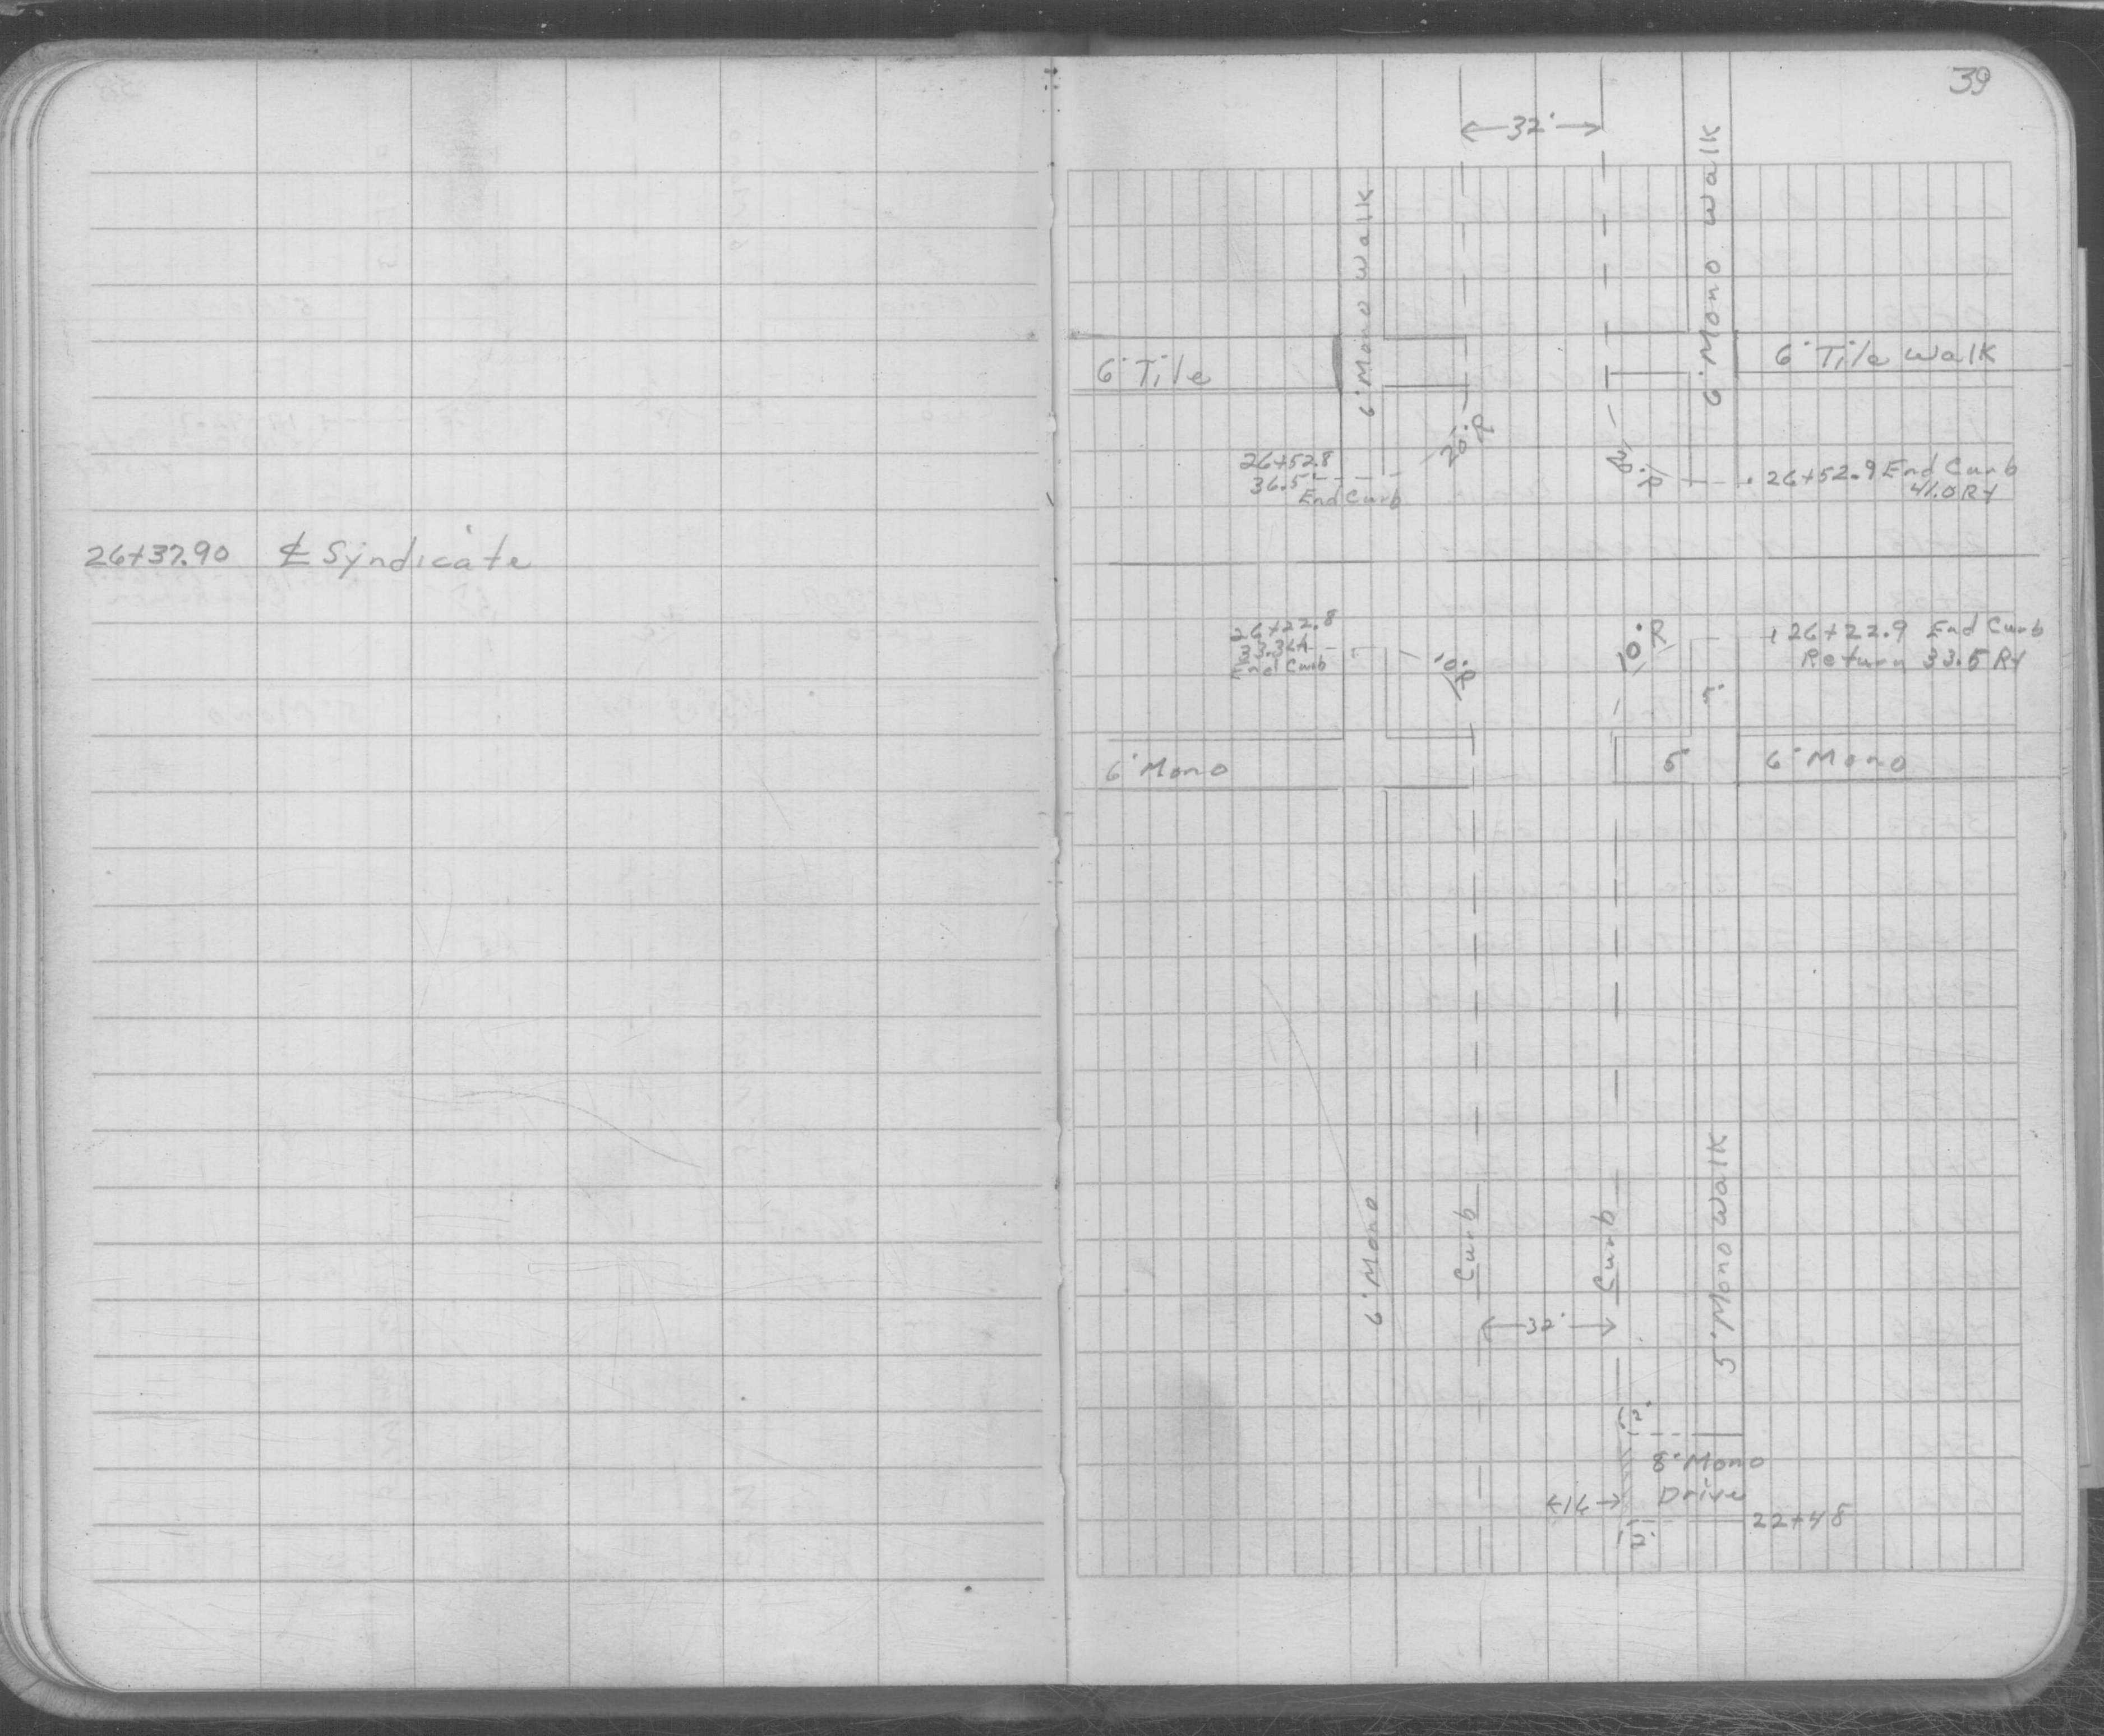 39
32'
6' Mono Walk
6' Mono Walk
6' Tile
6' Tile Walk
20' R
26+52.8
36.5
End Curb
26+52.9 End Curb
41.0 Rt
26+37.90 ℄ Syndicate
26+22.8
33.3 Lt
End Curb
10' R
10' R
26+22.9 End Curb
Return 33.5 Rt
5'
6' Mono
5'
6' Mono
6' Mono
Curb
Curb
5' Mono Walk
32'
2'
8' Mono
Drive
16
22+48
2'